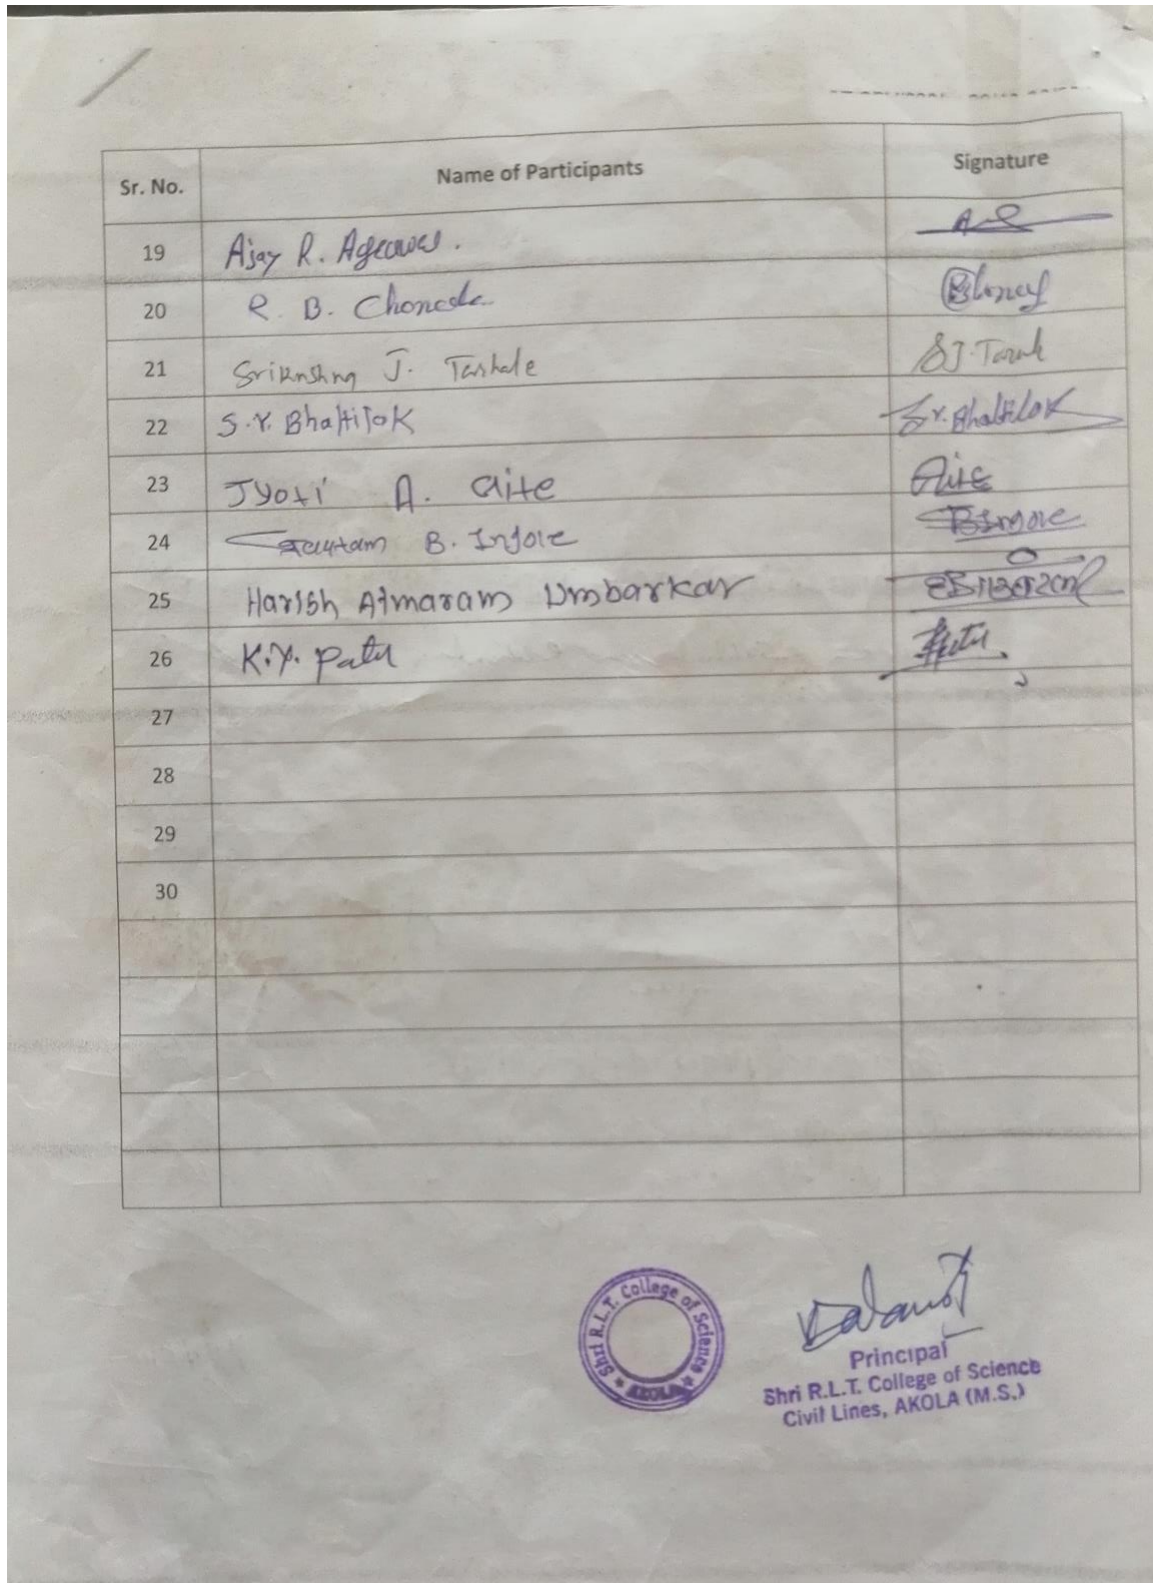 Sr. No. Name of Participants Signature
19 Ajay R. Agrawal.
20 R. B. Chonede
21 Srikrishna J. Tarhale SJ. Tarah
22 S.Y. Bhaltilok S.Y. Bhaltilok
23 Jyoti A. Gite Gite
24 Gautam B. Ingole BIngole
25 Harish Atmaram Umbarkar
26 K.Y. Patil
27
28
29
30
Shri R.L.T. College of Science
AKOLA
Principal
Shri R.L.T. College of Science
Civil Lines, AKOLA (M.S.)